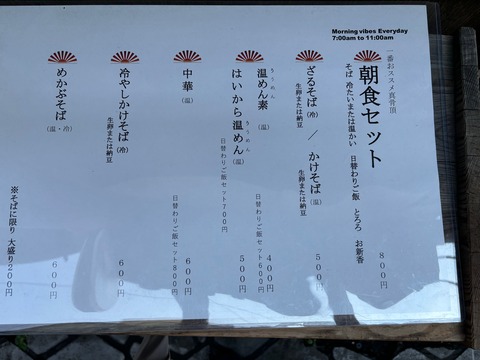 Morning vibes Everyday
7:00am to 11:00am
一番おススメ真骨頂
朝食セット
そば 冷たいまたは温かい 日替わりご飯 とろろ お新香
800円
ざるそば(冷) / かけそば(温)
生卵または納豆 生卵または納豆
500円
うぅめん
温めん素(温)
日替わりご飯セット600円
400円
うぅめん
はいから温めん(温)
日替わりご飯セット700円
500円
中華(温)
日替わりご飯セット800円
600円
冷やしかけそば(冷)
生卵または納豆
600円
めかぶそば
(温・冷)
600円
※そばに限り 大盛り200円